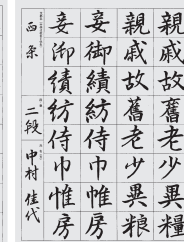 親戚故舊老少異糧
親戚故舊老少異粮
妾御績紡侍巾帷房
妾御績紡侍巾帷房
西条 二段 中村佳代